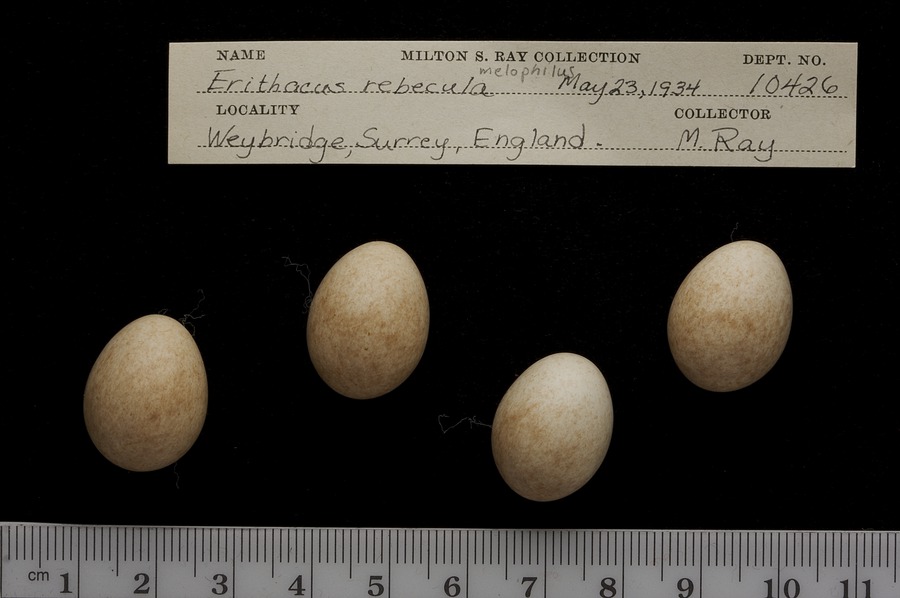 NAME MILTON S. RAY COLLECTION DEPT. NO.
melophilus
Erithacus rebecula May 23, 1934 10426
LOCALITY COLLECTOR
Weybridge, Surrey, England. M. Ray
cm 1 2 3 4 5 6 7 8 9 10 11